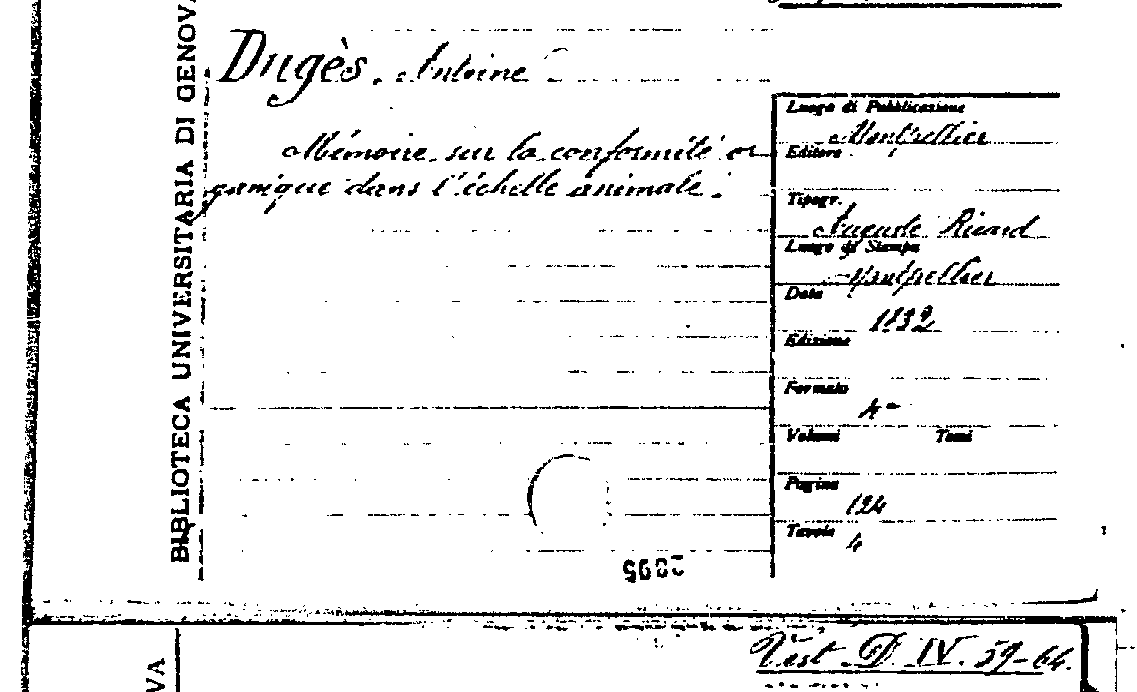 BIBLIOTECA UNIVERSITARIA DI GENOVA
Dugès. Antoine
Mémoire sur la conformité or
ganique dans l'échelle animale.
Luogo di Pubblicazione
Montpellier
Editore
Tipogr.
Auguste Ricard
Luogo di Stampa
Montpellier
Data
1832
Edizione
Formato
4°
Volumi Tomi
Pagine
124
Tavole
4
2895
VA
D. IV. 59-64.